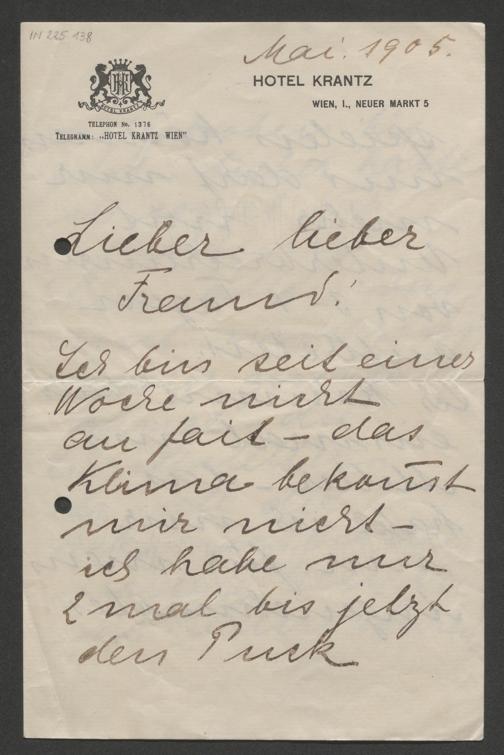 IN 225 138
Mai. 1905.
HOTEL KRANTZ
WIEN, I., NEUER MARKT 5
HOTEL KRANTZ
TELEPHON No. 1376
TELEGRAMM: „HOTEL KRANTZ WIEN"
Lieber lieber
Freund!
Ich bin seit einer
Woche nicht
au fait – das
Klima bekom̄t
mir nicht –
ich habe nur
2 mal bis jetzt
den Puck